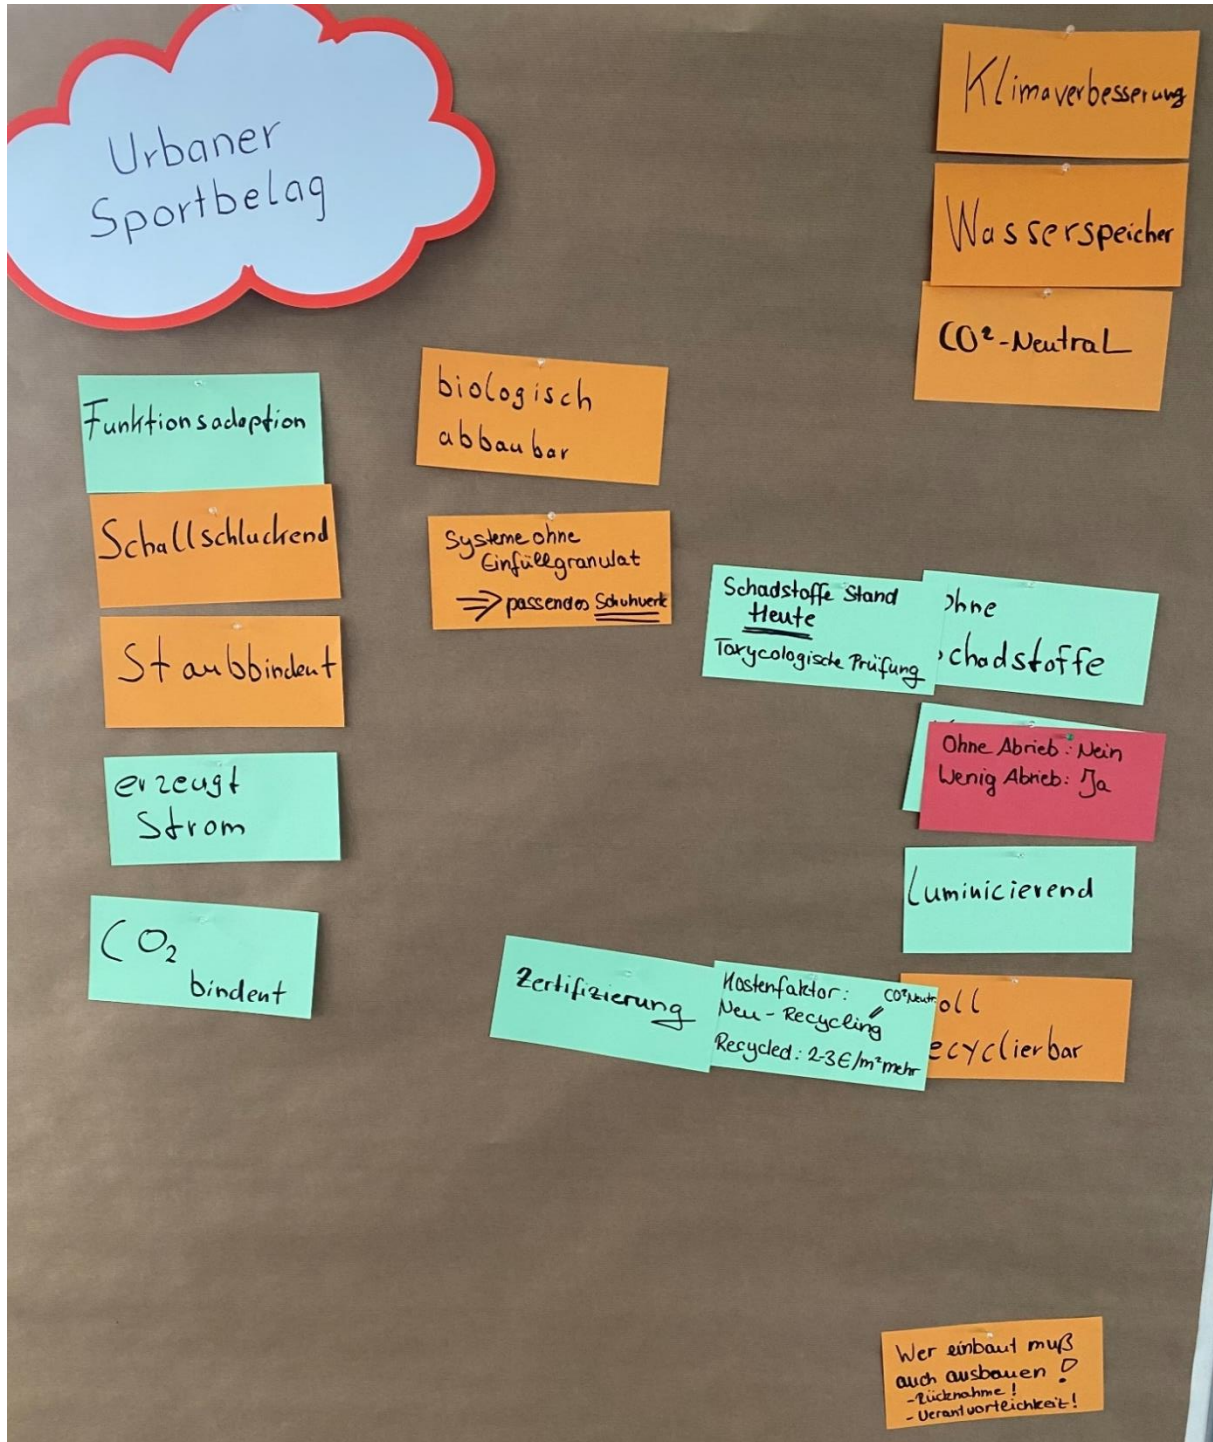 Urbaner
Sportbelag
Klimaverbesserung
Wasserspeicher
CO²-Neutral
Funktionsadaption
Schallschluckend
Staubbindent
erzeugt
Strom
CO₂
bindent
biologisch
abbaubar
Systeme ohne
Einfüllgranulat
⇒ passendes Schuhwerk
Schadstoffe Stand
Heute
Toxycologische Prüfung
Ohne
chadstoffe
Ohne Abrieb: Nein
Wenig Abrieb: Ja
Luminicierend
Zertifizierung
Kostenfaktor: CO²Neutr.
Neu - Recycling
Recycled: 2-3€/m² mehr
oll
ecyclierbar
Wer einbaut muß
auch ausbauen!
- Rücknahme!
- Verantwortlichkeit!